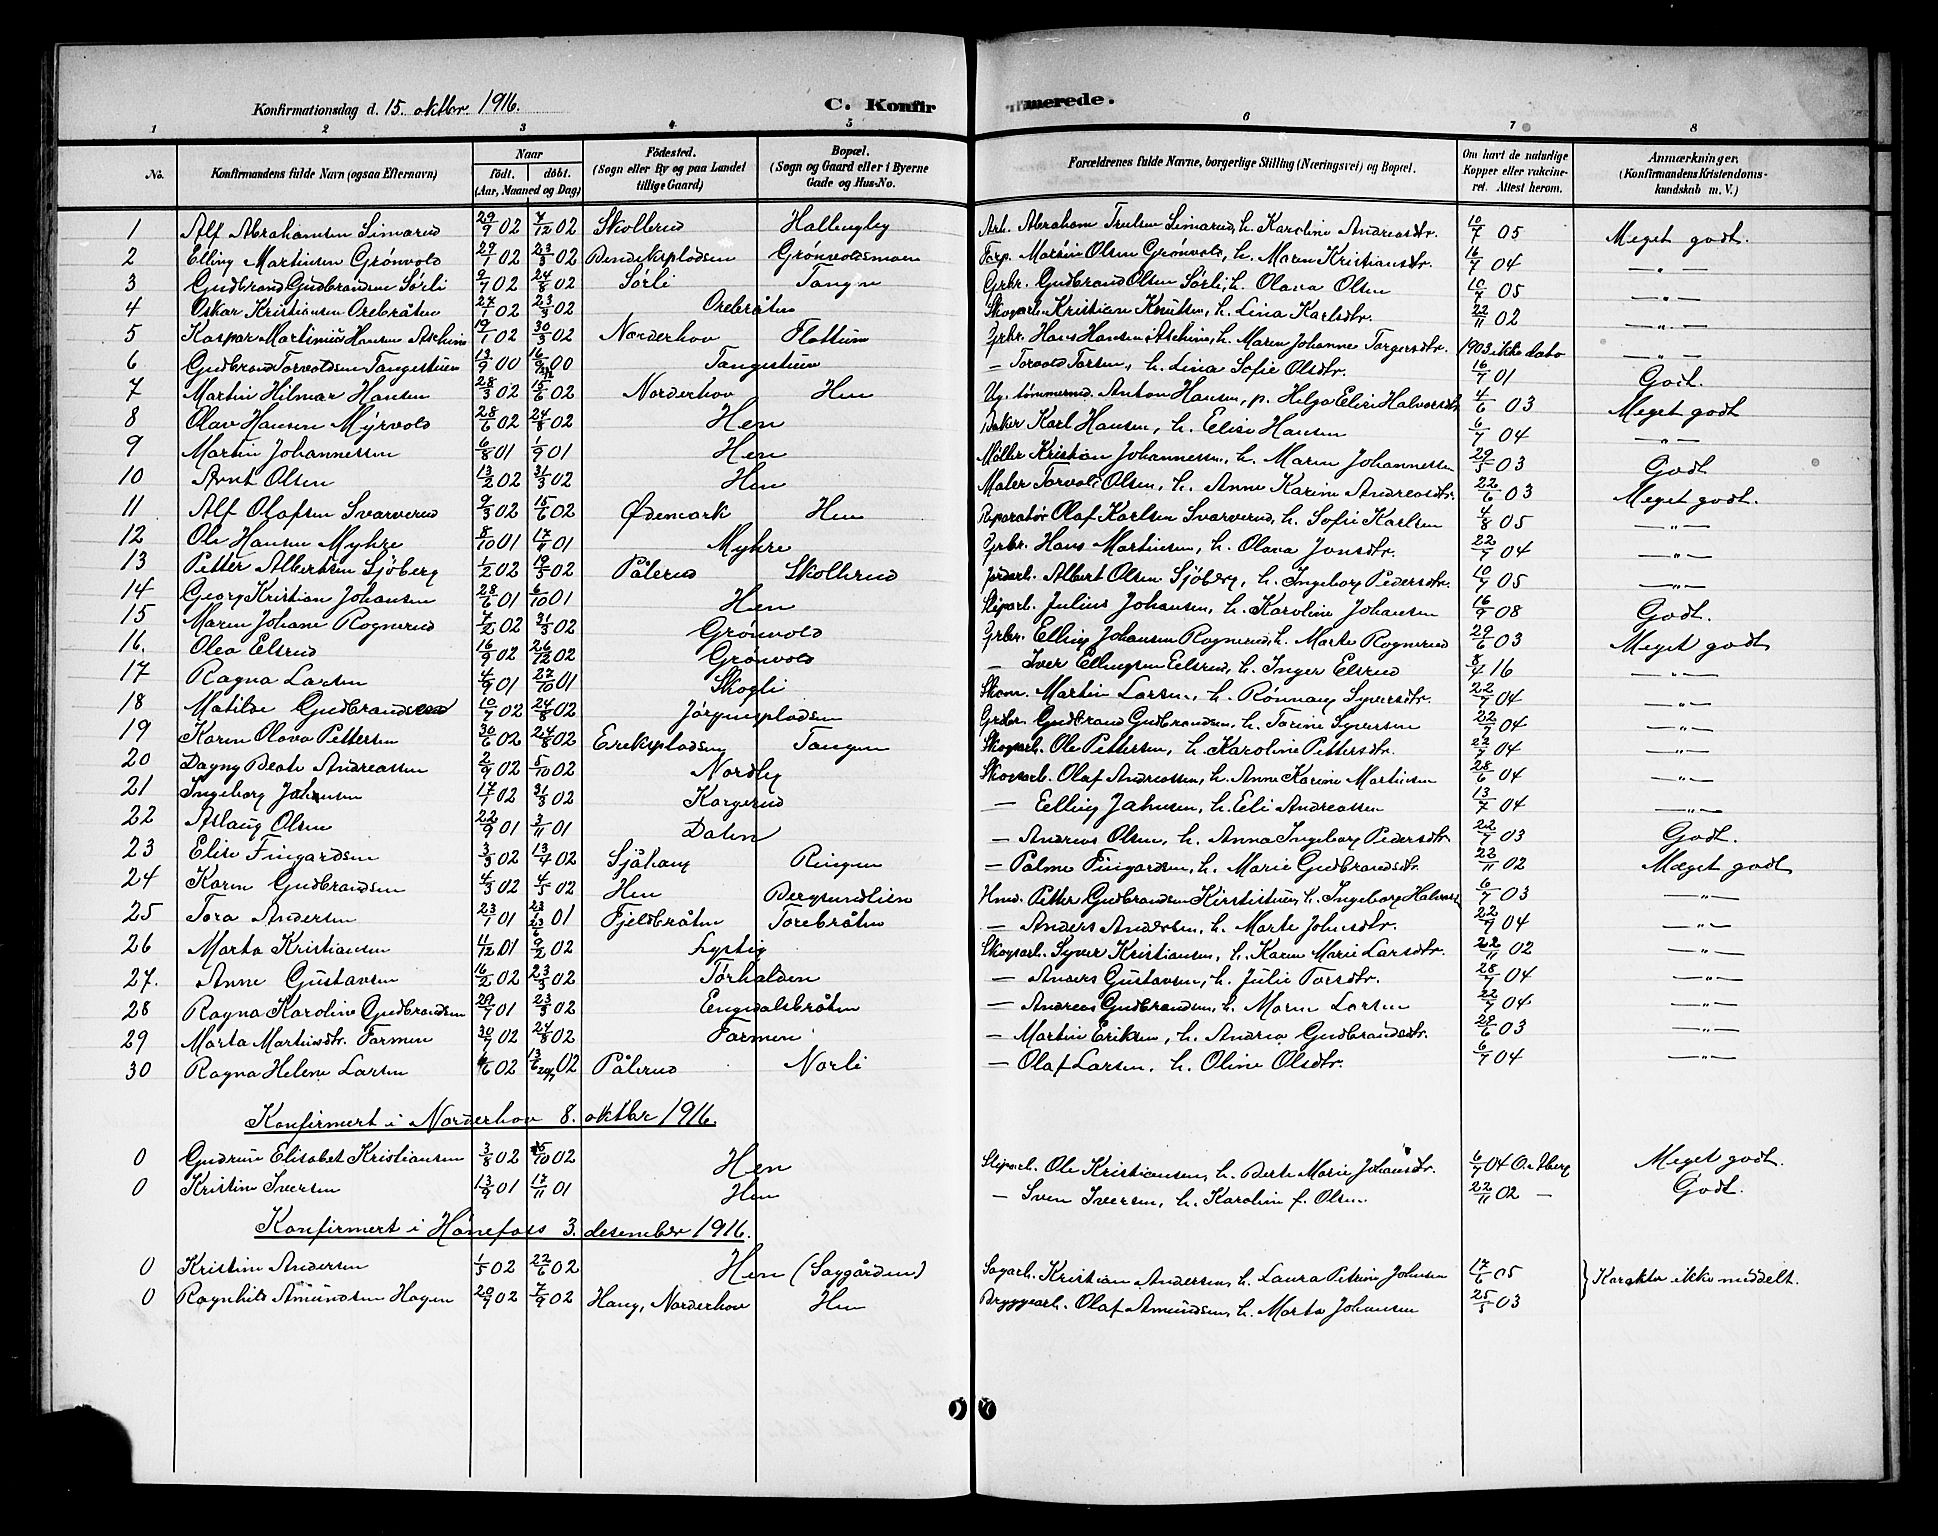 Konfirmationsdag d. 15. oktbr. 1916. C. Konfirmerede.
1 2 3 4 5 6 7 8
No. Konfirmandens fulde Navn (ogsaa Efternavn) Naar født. døbt. (Aar, Maaned og Dag) Fødested. (Sogn eller By og paa Landet tillige Gaard) Bopæl. (Sogn og Gaard eller i Byerne Gade og Hus-No. Forældrenes fulde Navne, borgerlige Stilling (Næringsvei) og Bopæl. Om havt de naturlige Kopper eller vakcineret. Attest herom. Anmærkninger. (Konfirmandens Kristendomskundskab m. V.)
1 Alf Abrahamsen Simarud 29/9 02 7/12 02 Skollerud Hallengby Arb. Abraham Trulsen Simarud, h. Karoline Andreasdtr. 10/7 05 Meget godt.
2 Elling Martinsen Grønvold 29/1 02 23/3 02 Bendikspladsen Grønvoldsmoen Forp. Martin Olsen Grønvold, h. Maren Kristiansdtr. 16/7 04 —"—
3 Gudbrand Gudbrandsen Sørli 9/7 02 24/8 02 Sørli Tangen Grbr. Gudbrand Olsen Sørli, h. Olava Olsen 10/7 05 —"—
4 Oskar Kristiansen Orebråten 27/1 02 23/3 02 Orebråten Skogarb. Kristian Knutsen, h. Lina Karlsdtr. 22/11 02
5 Kaspar Martinius Hansen Aschim 19/1 02 30/3 02 Norderhov Flattum Grbr. Hans Hansen Aschim, h. Maren Johanne Torgersdtr. 1903 ikke dato —"—
6 Gudbrand Torvoldsen Tangestuen 13/9 00 16/9 00 Tangestuen — Torvold Torsen, h. Lina Sofie Olsdtr. 16/7 01 —"—
7 Martin Hilmar Hansen 28/3 02 15/6 02 Norderhov Hen Ug. tømmermd. Anton Hansen, p. Helga Elise Halvorsdtr 4/6 03 Godt.
8 Olav Hansen Myrvold 28/6 02 24/8 02 Hen Baker Karl Hansen, h. Elise Hansen 6/7 04 Meget godt
9 Martin Johannessen 6/8 01 1/9 01 Hen Møller Kristian Johannessen, h. Maren Johannessen 29/5 03 —"—
10 Arnt Olsen 13/2 02 31/3 02 Hen Maler Torvald Olsen, h. Anne Karine Andreasdtr. 22/6 03 Godt
11 Alf Olafsen Svarverud 9/3 02 15/6 02 Ødemark Hen Reparatør Olaf Karlsen Svarverud, h. Sofie Karlsen 4/8 05 Meget godt.
12 Ole Hansen Myhre 8/10 01 17/11 01 Myhre Grbr. Hans Martinsen, h. Olava Jonsdtr. 22/7 04 —"—
13 Petter Albertsen Sjøberg 1/2 02 17/5 02 Pålerud Skollerud Jordarb. Albert Olsen Sjøberg, h. Ingeborg Pedersdtr. 10/7 05 —"—
14 Georg Kristian Johansen 28/6 01 6/10 01 Hen Sliparb. Julius Johansen, h. Karoline Johansen 16/9 08 Godt.
15 Maren Johane Rognerud 7/2 02 31/3 02 Grønvold Grbr. Elling Johansen Rognerud, h. Marte Rognerud 29/6 03 Meget godt
16. Olea Elsrud 16/9 02 26/12 02 Grønvold — Iver Ellingsen Elsrud, h. Inger Elsrud 8/4 16 —"—
17 Ragna Larsen 4/9 01 27/10 01 Skogli Skom. Martin Larsen, h. Rønnaug Syversdtr. 22/7 04 —"—
18 Matilde Gudbrandsen 10/7 02 24/8 02 Jørgenspladsen Grbr. Gudbrand Gudbrandsen, h. Torine Syversen 22/7 04 —"—
19 Karen Olava Pettersen 30/6 02 24/8 02 Erikspladsen Tangen Skogsarb. Ole Pettersen, h. Karoline Pettersdtr. 22/7 04 —"—
20 Dagny Beate Andreassen 2/9 02 5/10 02 Nordby Skogsarb. Olaf Andreassen, h. Anne Karine Martinsen 28/6 04 —"—
21 Ingeborg Jahnsen 17/1 02 31/3 02 Korgerud — Elling Jahnsen, h. Eli Andreassen 13/7 04 —"—
22 Aslaug Olsen 22/9 01 3/11 01 Dalen — Andreas Olsen, h. Anna Ingeborg Pedersdtr. 22/7 03 Godt.
23 Elise Fingardsen 3/3 02 13/4 02 Sjåhaug Ringen — Palme Fingardsen, h. Marie Gudbrandsdtr. 22/11 02 Meget godt
24 Karen Gudbrandsen 4/3 02 4/5 02 Hen Bergsundlien Hmd. Petter Gudbrandsen Kirstistuen, h. Ingeborg Halvorsd 6/7 03 —"—
25 Tora Andersen 23/1 01 23/6 01 Fjeldbråten Torebråten — Anders Andersen, h. Marte Johnsdtr. 22/7 04 —"—
26 Marta Kristiansen 11/12 01 9/2 02 Lystig Skogsarb. Syver Kristiansen, h. Karen Marie Larsdtr. 22/11 02 —"—
27. Anne Gustavsen 16/2 02 23/3 02 Tørhalden — Anders Gustavsen, h. Julie Torsdtr. 28/7 04 —"—
28 Ragna Karoline Gudbrandsen 29/7 01 23/3 02 Engndalsbråten — Andreas Gudbrandsen, h. Maren Larsen 22/7 04 —"—
29 Marta Martinsdtr. Formen 30/7 02 24/8 02 Formen — Martin Eriksen, h. Andrea Gudbrandsdtr. 29/6 03 —"—
30 Ragna Helene Larsen 6/6 02 13/6 02 Pålerud Norli — Olaf Larsen, h. Oline Olsdtr. 6/7 04 —"—
Konfirmert i Norderhov 8. oktbr 1916.
0 Gudrun Elisabet Kristiansen 3/8 02 5/10 02 Hen Sliparb. Ole Kristiansen, h. Berte Marie Johansdtr. 6/7 04 Meget godt.
0 Kristine Iversen 13/9 01 17/11 01 Hen — Sven Iversen, h. Karoline f. Olsen. 22/11 02 — Godt.
Konfirmert i Hønefoss 3. desember 1916.
0 Kristine Andersen 1/5 02 22/6 02 Hen (Saggården) Sagarb. Kristian Andersen, h. Laura Petrine Johnsen 17/6 05 } Karakter ikke middelt.
0 Ragnhild Amundsen Hagen 20/7 02 7/9 02 Haug, Norderhov Hen Bryggearb. Olaf Amundsen, h. Marta Johansen 25/5 03